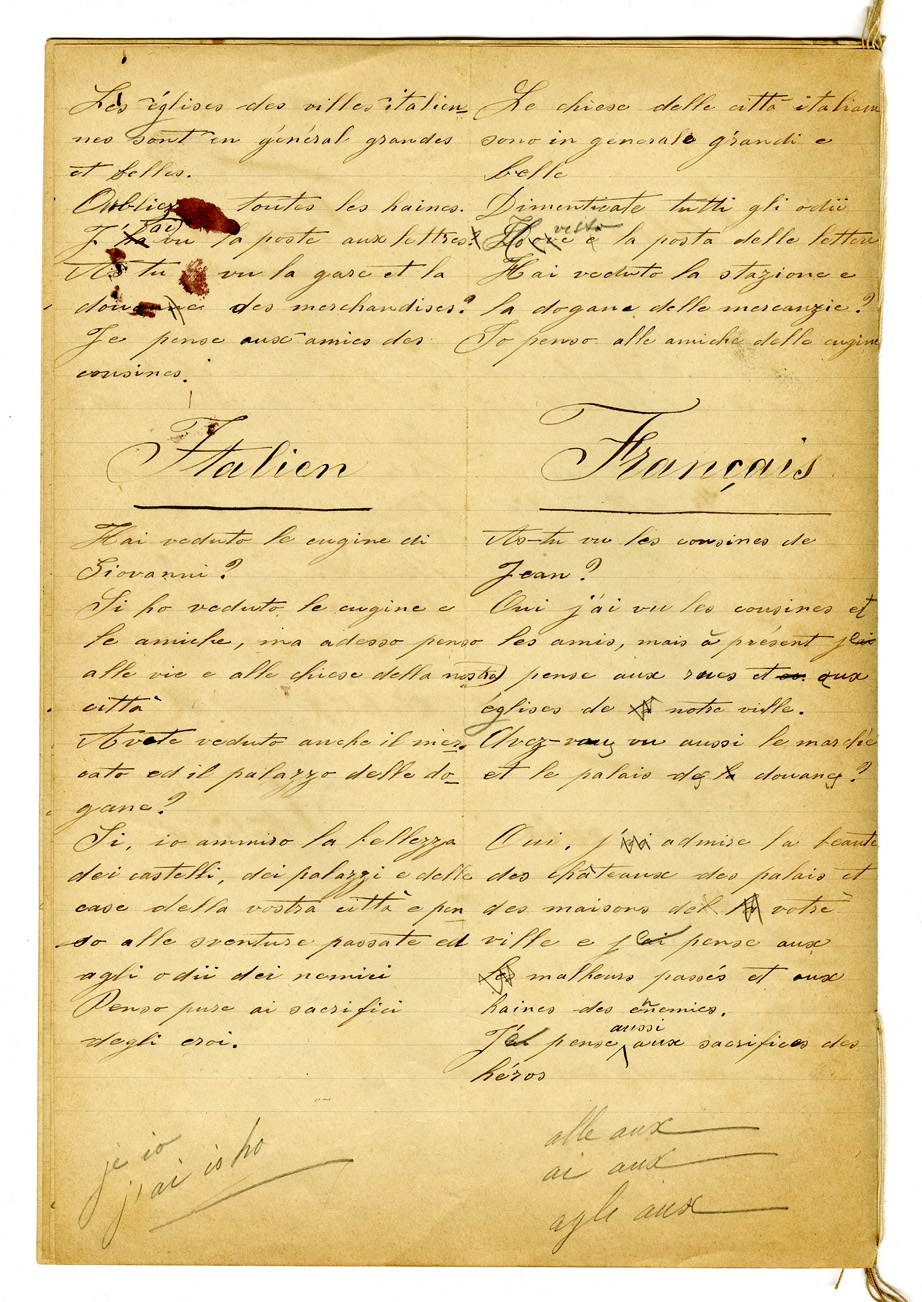 Les églises des villes italien_
nes sont en général grandes
et belles.
Oubliez toutes les haines.
J'ai vu la poste aux lettres?
As tu vu la gare et la
douane des merchandises?
Je pense aux amies des
cousines.
Le chiese delle città italiane
sono in generale grandi e
belle
Dimenticate tutti gli odii
visto la posta delle lettere
Hai veduto la stazione e
la dogana delle mercanzie?
Io penso alle amiche delle cugine
Italien
Hai veduto le cugine di
Giovanni?
Si ho veduto le cugine e
le amiche, ma adesso penso
alle vie e alle chiese della nostra
città
Avete veduto anche il mer_
cato ed il palazzo delle do_
gane?
Si, io ammiro la bellezza
dei castelli, dei palazzi e delle
case della vostra città e pen
so alle sventure passate ed
agli odii dei nemici
Penso pure ai sacrifici
degli eroi.
Français
As-tu vu les cousines de
Jean?
Oui j'ai vu les cousines et
les amis, mais à présent je
pense aux rues et aux
églises de notre ville.
Avez-vous vu aussi le marché
et le palais des douanes?
Oui, j'admire la beauté
des châteaux des palais et
des maisons de votre
ville e je pense aux
malheurs passés et aux
haines des ennemies.
Je pense aussi aux sacrifices des
héros
je io
j'ai io ho
alle aux
ai aux
agli aux